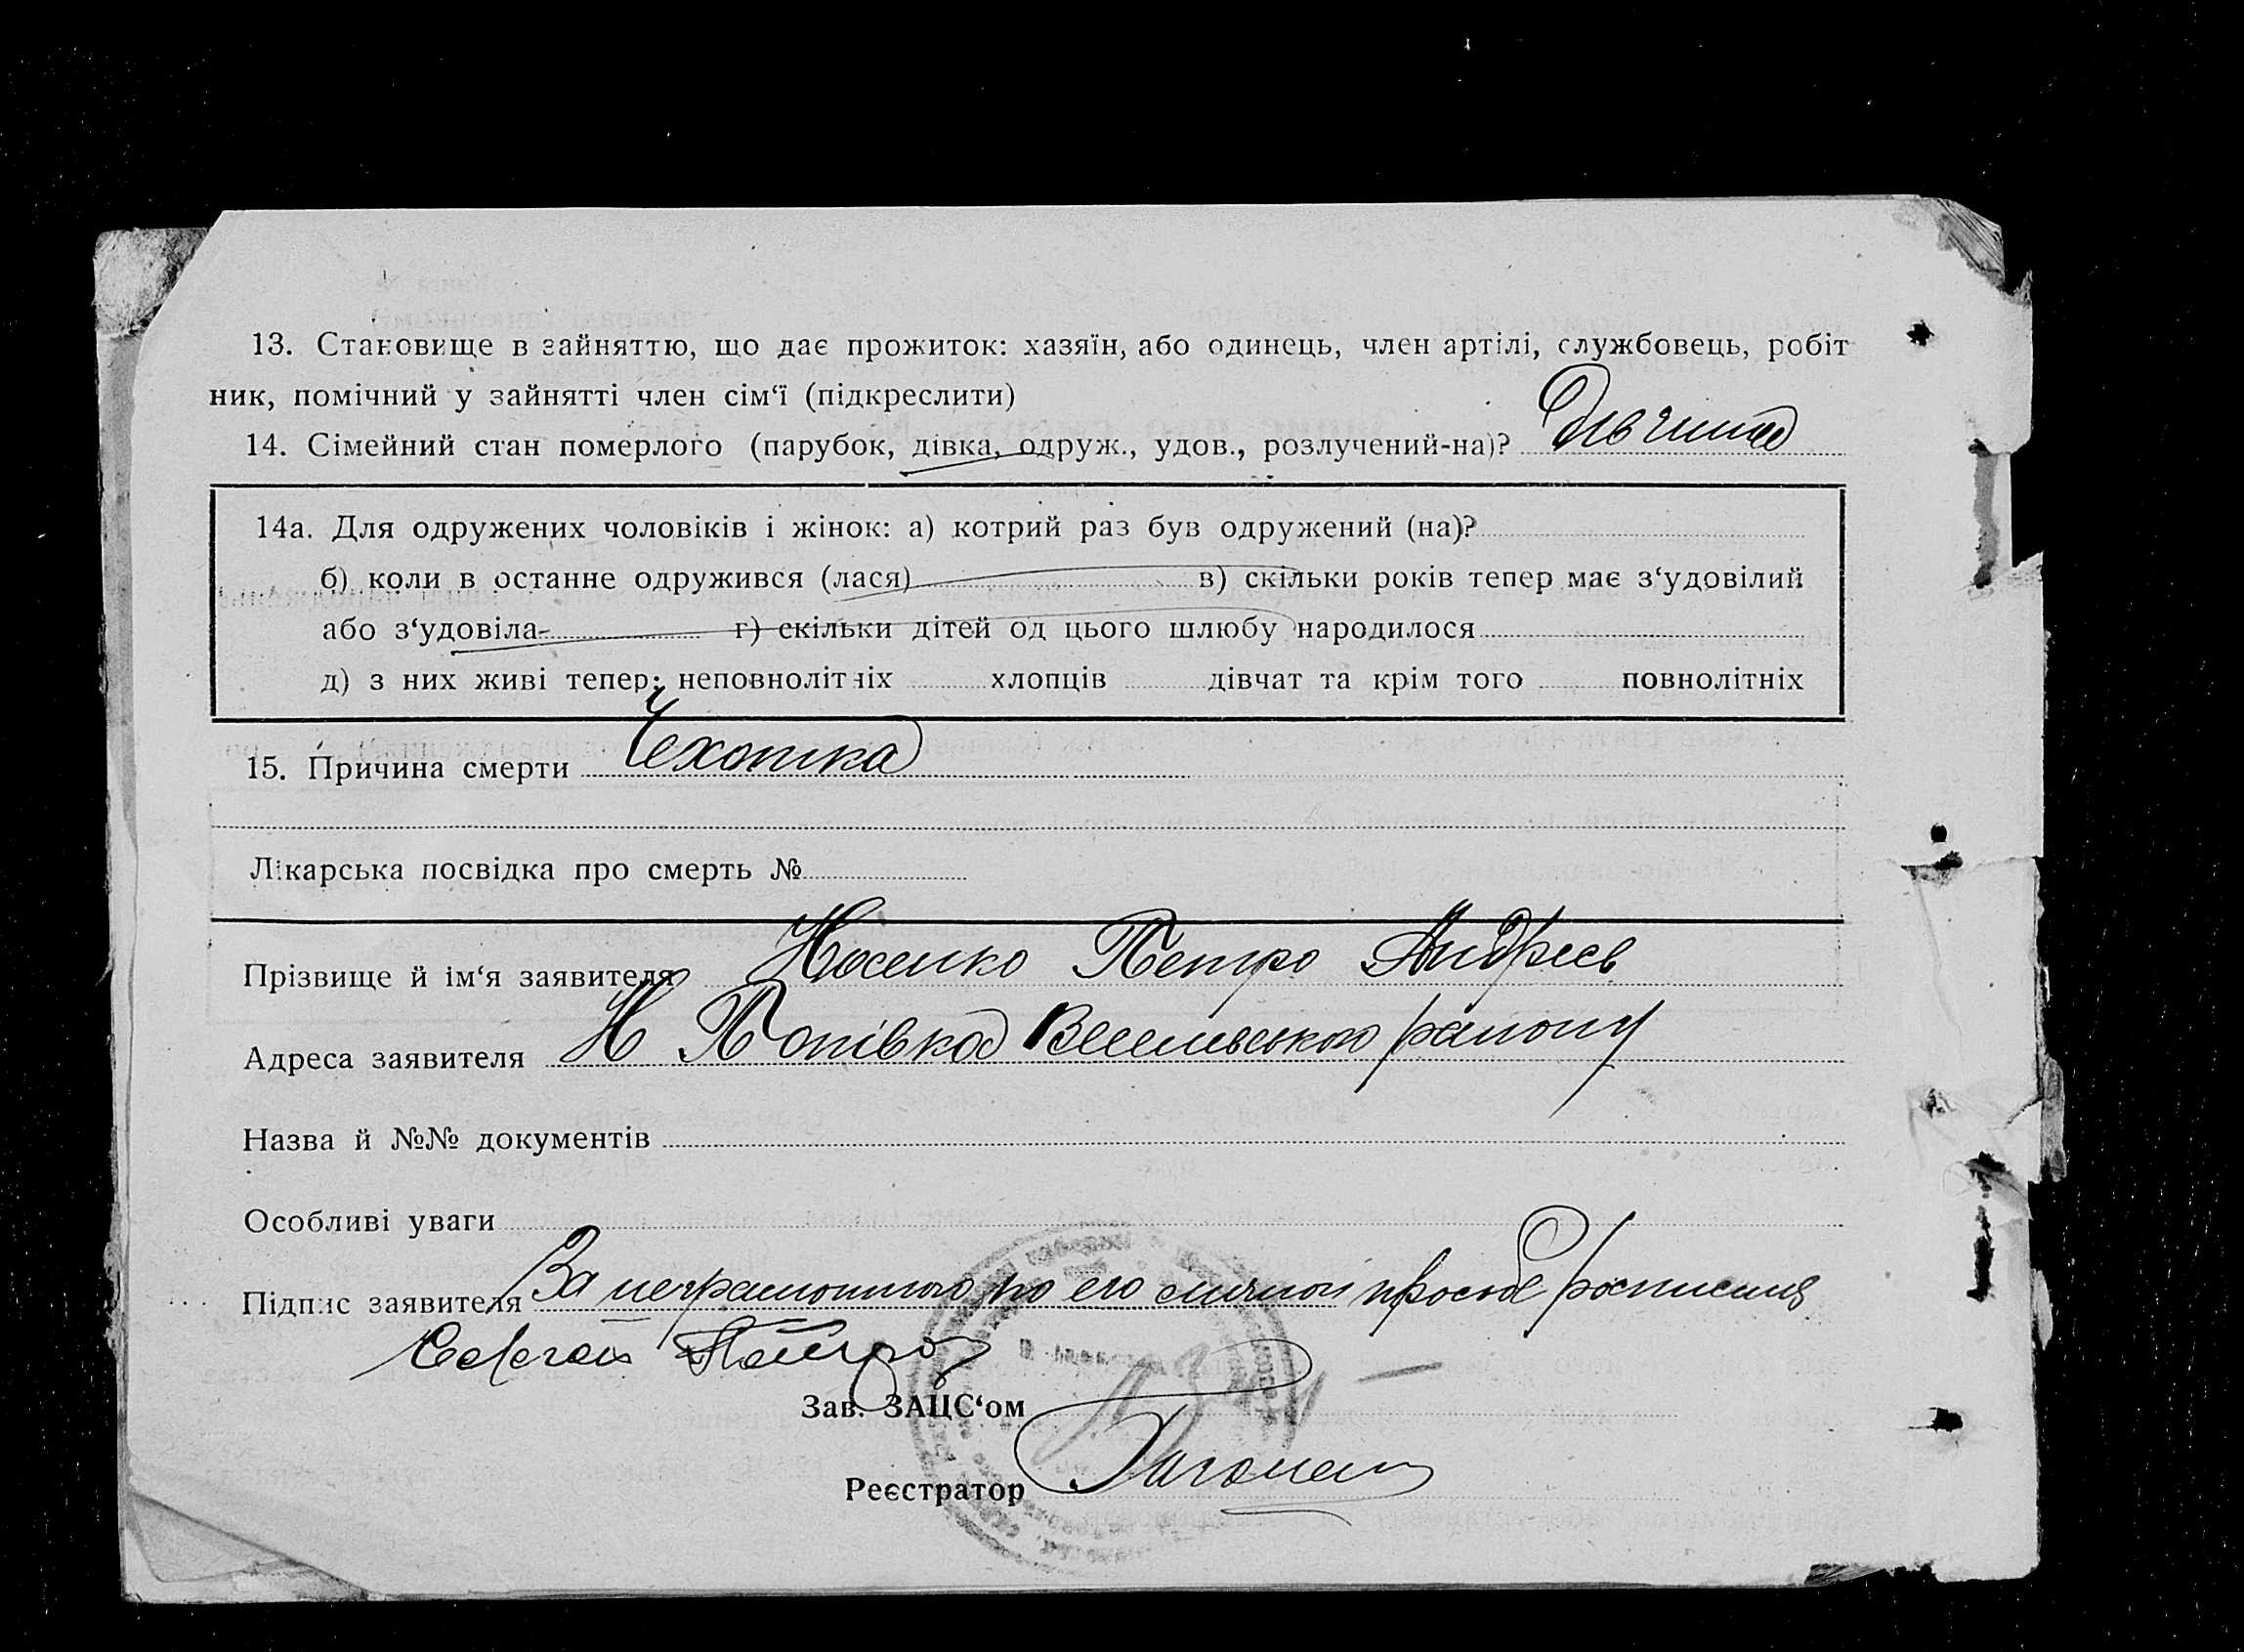 13. Становище в зайняттю, що дає прожиток: хазяїн, або одинець, член артілі, службовець, робіт
ник, помічний у зайнятті член сім‘ї (підкреслити)
14. Сімейний стан померлого (парубок, дівка, одруж., удов., розлучений-на)? Дівчина
14а. Для одружених чоловіків і жінок: а) котрий раз був одружений (на)?
б) коли в останне одружився (лася) в) скільки років тепер має з‘удовілий
або з‘удовіла- г) скільки дітей од цього шлюбу народилося
д) з них живі тепер: неповнолітніх хлопців дівчат та крім того повнолітніх
15. Причина смерти Чехотка
Лікарська посвідка про смерть №
Прізвище й ім‘я заявителя Носенко Петро Андреев
Адреса заявителя Н Попівка Веселевського району
Назва й №№ документів
Особливі уваги
Підпис заявителя За неграмотного по его личной просьбе
Зав. ЗАЦС‘ом
Реєстратор